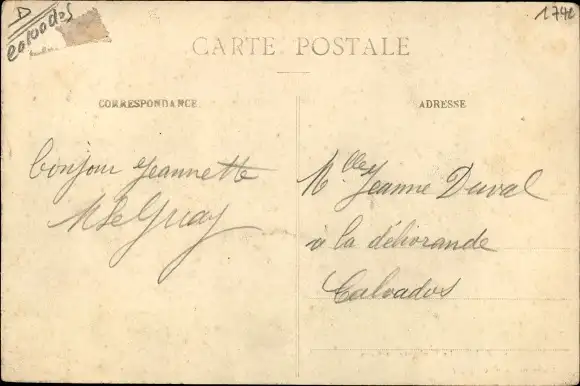 D
calvados
1742
CARTE POSTALE
CORRESPONDANCE
ADRESSE
bonjour Jeannette
M Le Guay
Mlle Jeanne Duval
à la délivrande
Calvados